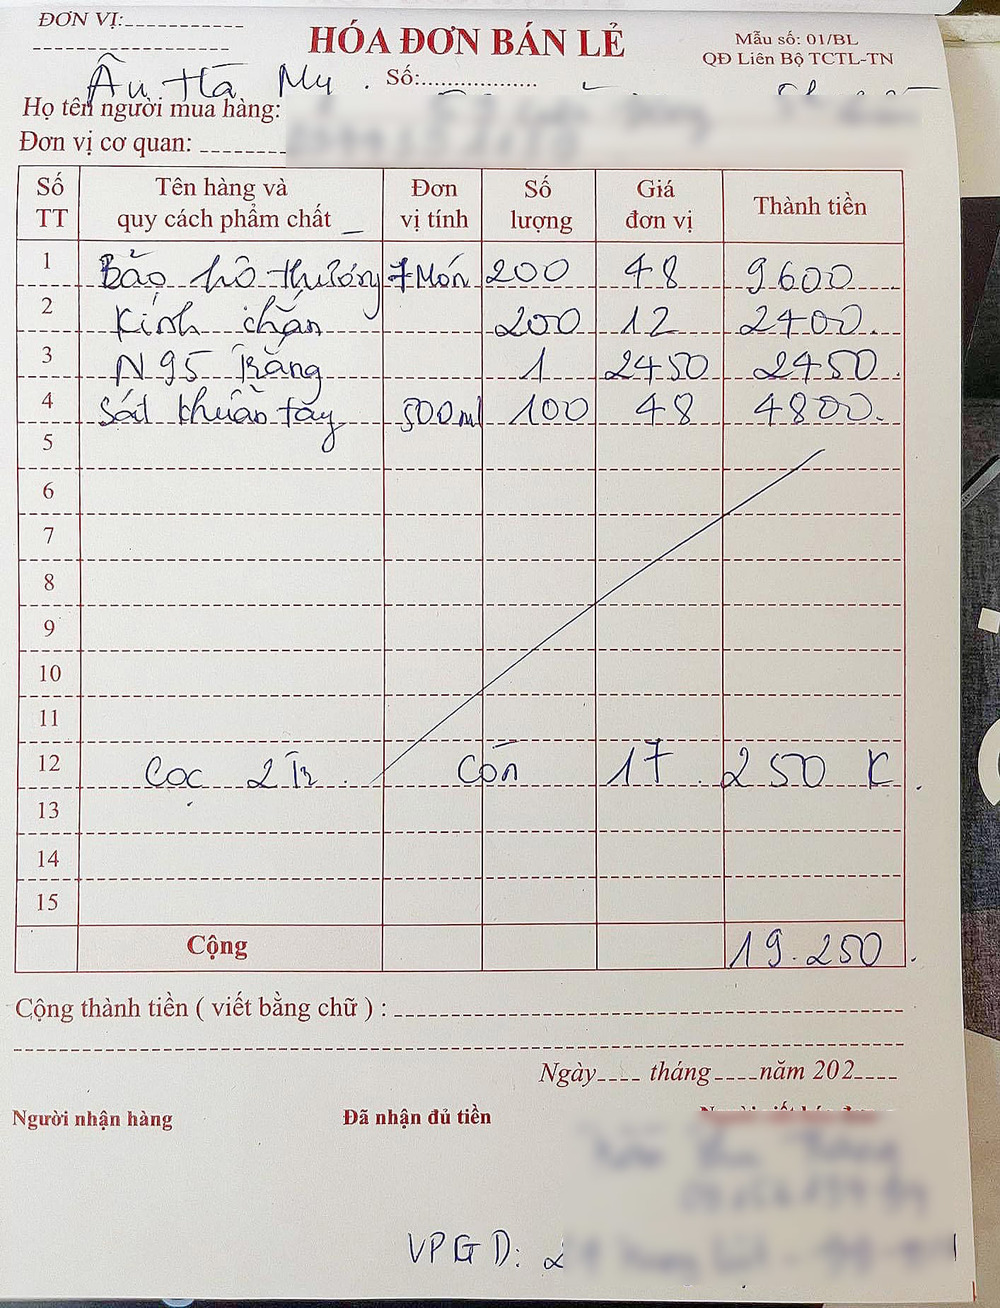 ĐƠN VỊ:
HÓA ĐƠN BÁN LẺ
Mẫu số: 01/BL
QĐ Liên Bộ TCTL-TN
Số:
Âu Hà My.
Họ tên người mua hàng:
Đơn vị cơ quan:
Số TT Tên hàng và quy cách phẩm chất Đơn vị tính Số lượng Giá đơn vị Thành tiền
1 Bảo hộ thường 7 Món 200 48 9600
2 Kính chắn 200 12 2400.
3 N95 Trắng 1 2450 2450.
4 Sát khuẩn tay 500ml 100 48 4800.
5
6
7
8
9
10
11
12 Cọc 2 Tr. Còn 17.250 K.
13
14
15
Cộng 19.250.
Cộng thành tiền ( viết bằng chữ ) :
Ngày tháng năm 202
Người nhận hàng Đã nhận đủ tiền
VPGD: